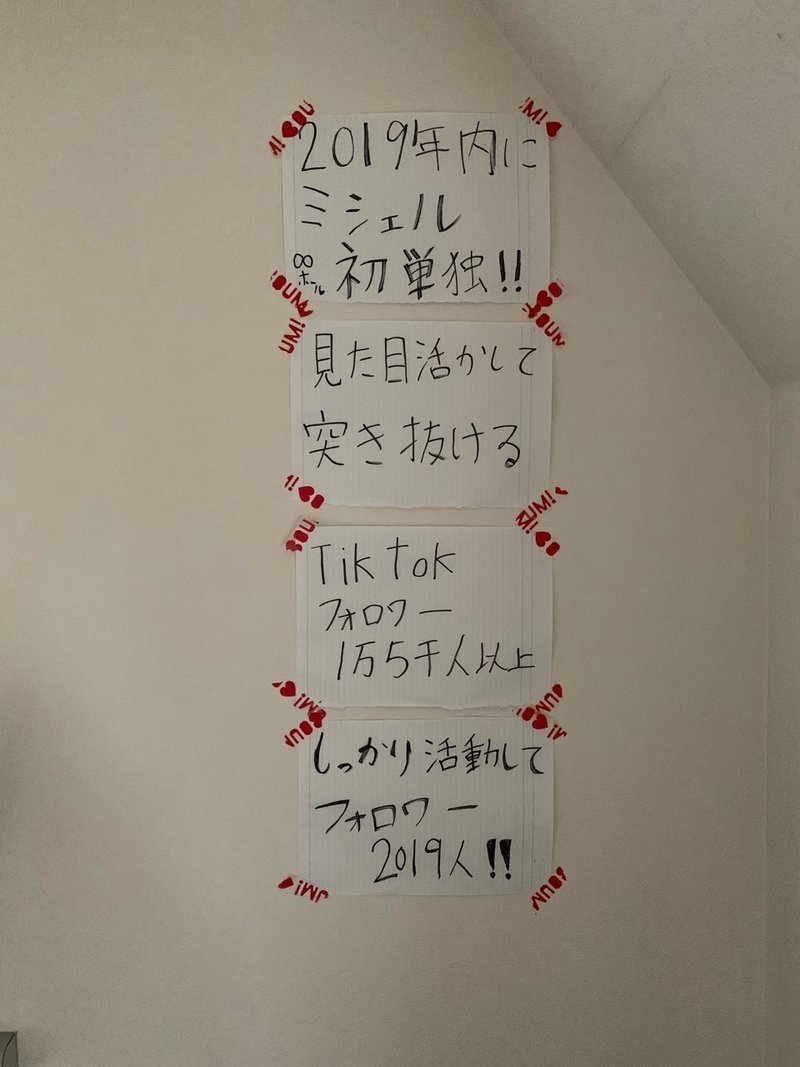 2019年内に
ミシェル
∞ホール 初単独!!
見た目活かして
突き抜ける
TikTok
フォロワー
1万5千人以上
しっかり活動して
フォロワー
2019人!!